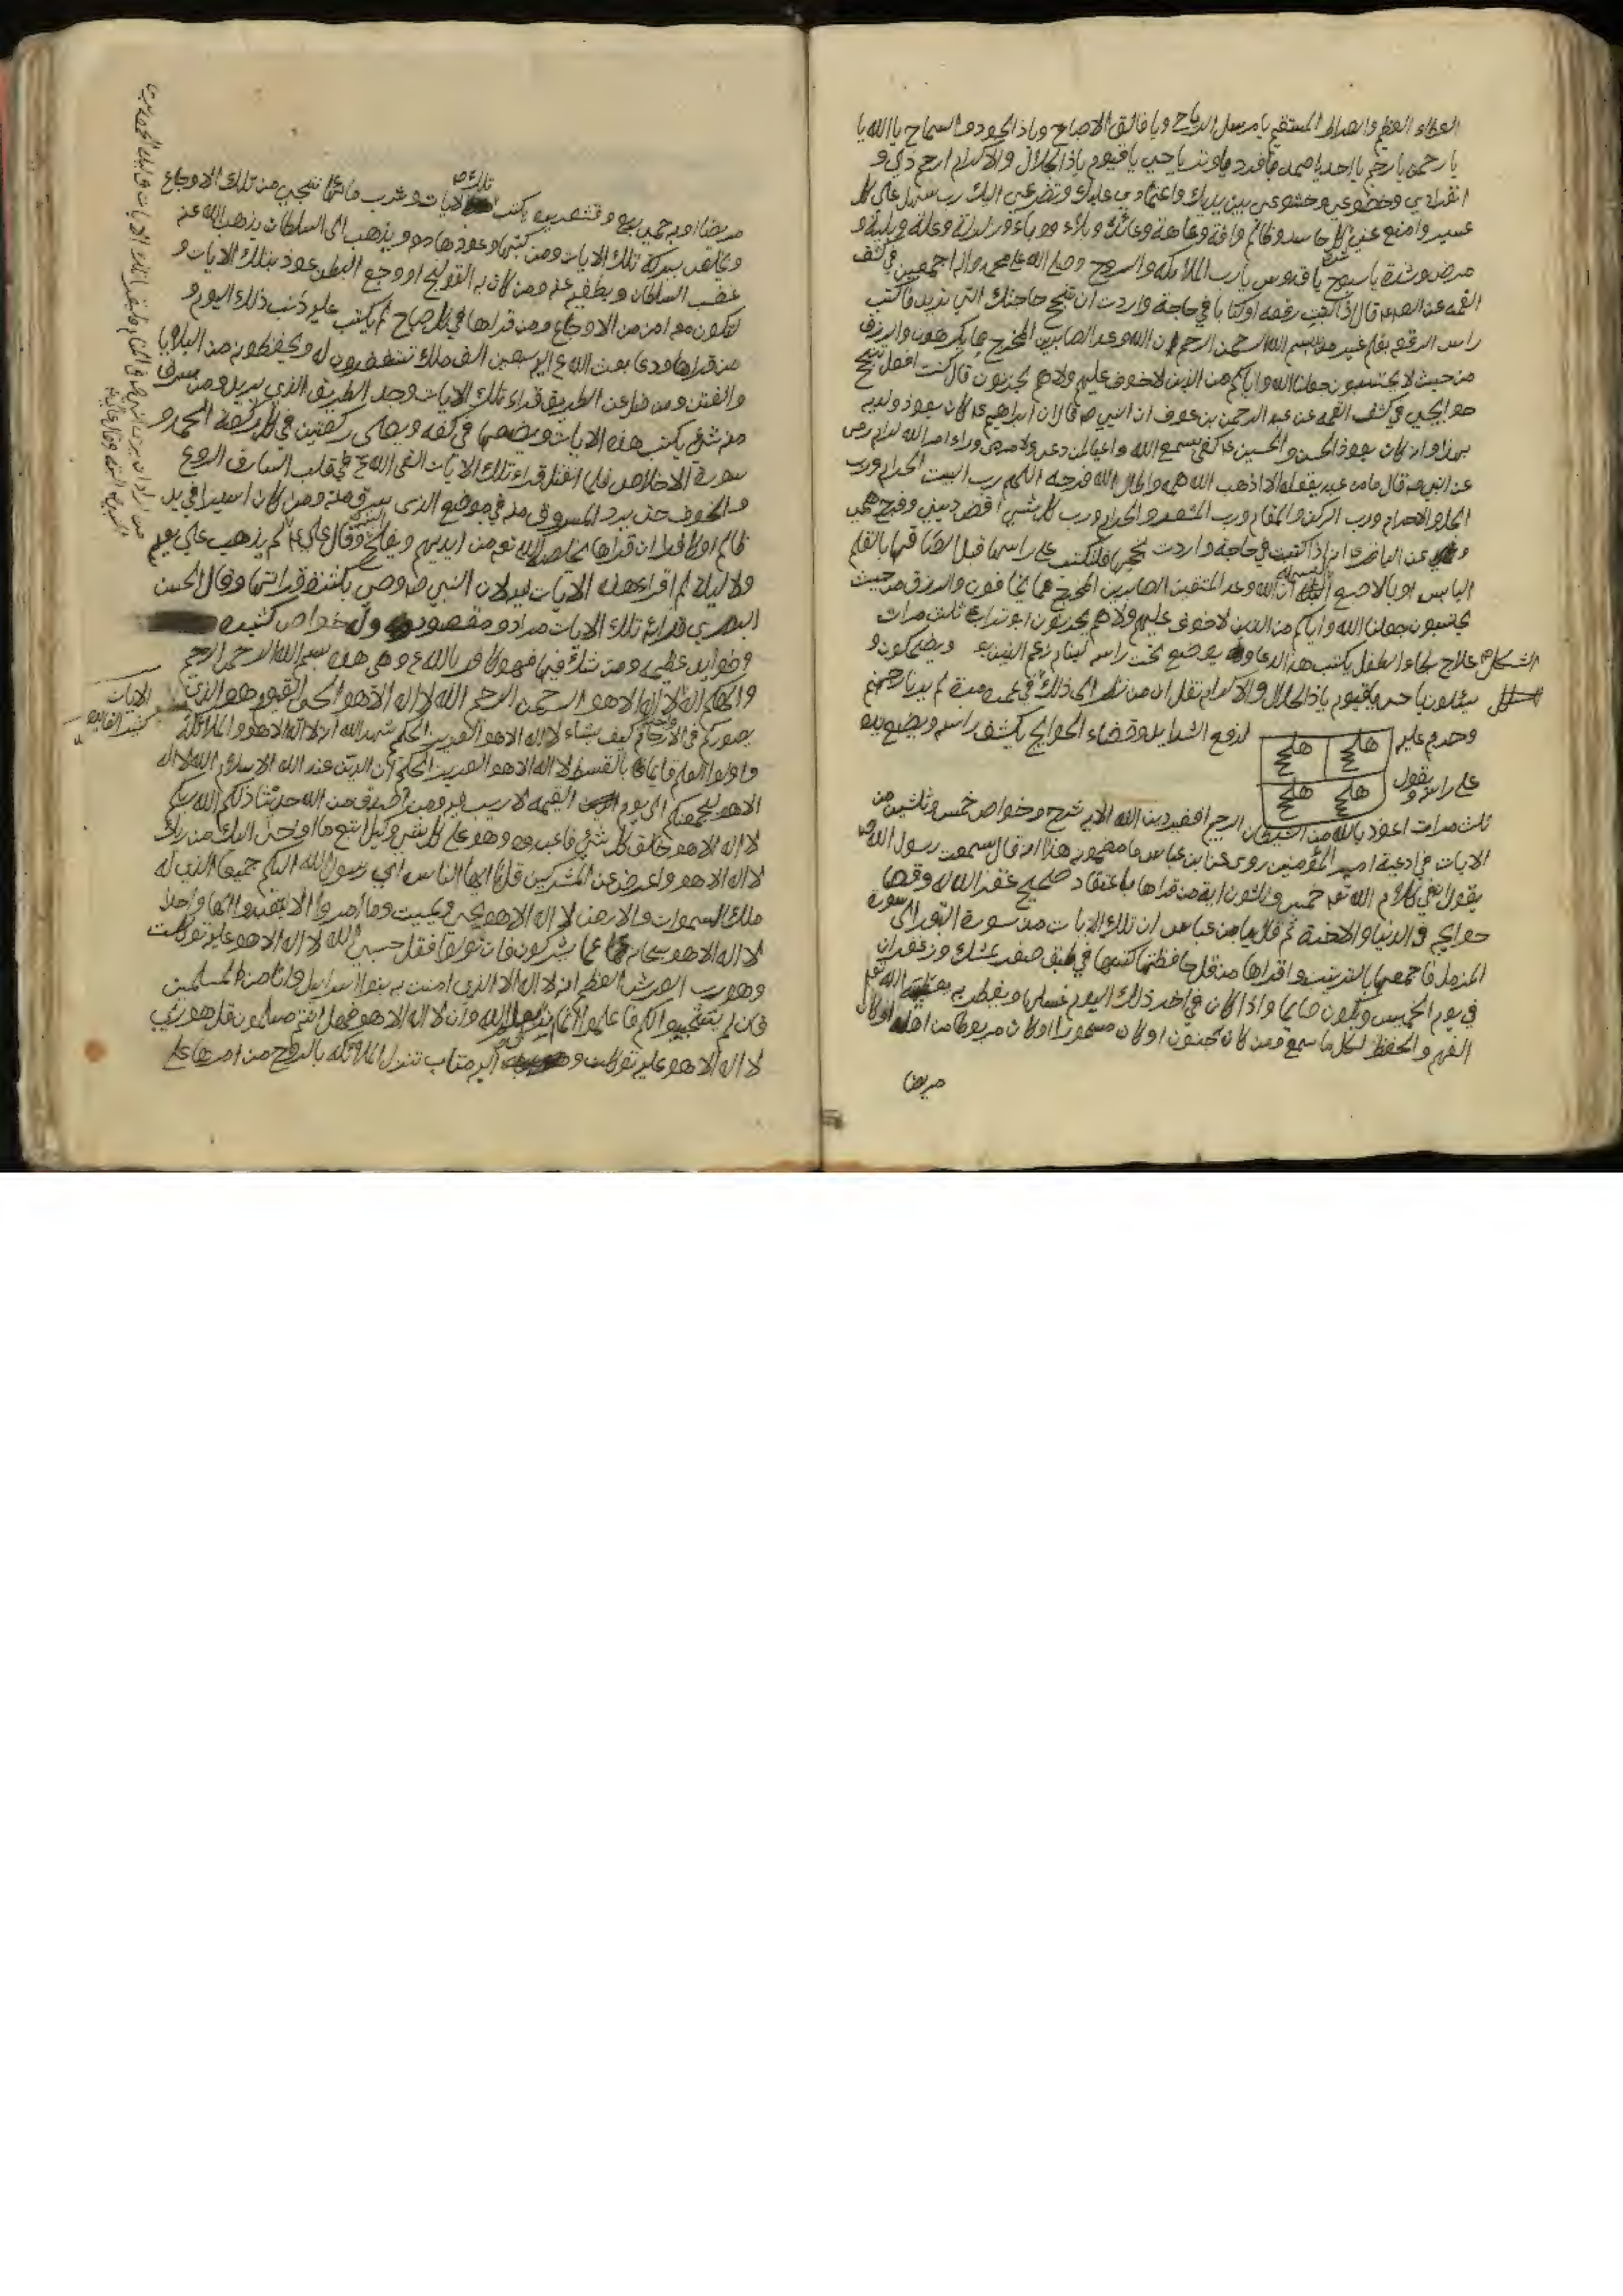 العطاء العظيم والصراط المستقيم يا مرسل الرياح ويا فالق الاصباح وياذا الجود والسماح يا الله يا
يا رحمن يا رحيم يا احد يا صمد يا فرد يا وتر يا حي يا قيوم ياذا الجلال والاكرام ارحم ذلي و
انفرادي وخضوعي وخشوعي بين يديك واعتمادي عليك وتضرعي اليك رب سهل علي كل
عسير وامنع عني كل حاسد وظالم وافة وعاهة وبلاء ووباء وزلزلة وعلة وبلية و
مرض وشدة يا سبوح يا قدوس يا رب الملائكة والروح وصلى الله على محمد واله اجمعين في كشف
الغمه عن قال اذا كتبت رقعه او كتابا في حاجة واردت ان تنجح حاجتك التي تريد فاكتب
راس الرقعه بقلم غير مداد بسم الله الرحمن الرحيم ان الله وعد الصابرين المخرج مما يكرهون والرزق
من حيث لا يحتسبون جعلنا الله واياكم من الذين لا خوف عليهم ولا هم يحزنون قال كنت افعل تنجح
حوايجي في كشف الغمه عن عبد الرحمن بن عوف ان النبي ص قال ان ابراهيم كان يعوذ ولديه
بهذا وانه كان يعوذ الحسن والحسين كفى بسمع الله واعيا لمن دعى ولا مرمى وراء امر الله لرام رمى
عن النبي ص قال ما من عبد يقوله الا اذهب الله همه واطال الله فرحه اللهم رب البيت الحرام ورب
الحل والاحرام ورب الركن والمقام ورب المشعر والحرام ورب كل شيء اقض ديني وفرج همي
عن الباقر انه اذا كتبت في حاجة واردت نجحها فلتكتب على راسها قبل الصاقها بالقلم
اليابس او بالاصبع البسمله ان الله وعد المتقين الصابرين المخرج مما يخافون والرزق من حيث
يحتسبون جعلنا الله واياكم من الذين لا خوف عليهم ولا هم يحزنون ثلث مرات
علاج بكاء الطفل يكتب هذا الدعاء يوضع تحت راسه لينام ويضحكون و
الشكل
يا حي يا قيوم ياذا الجلال والاكرام نقل ان من نظر الى ذلك في عمره مرة لم ير نار جهنم
وحرم عليه
هلح
هلح
هلح
هلح
لدفع الشدايد وقضاء الحوايج يكشف راسه ويضع يده
على راسه ويقول
ثلث مرات اعوذ بالله من الشيطان الرجيم افغير دين الله الاية شرح وخواص خمس وثلثين من
الايات في ادعية امير المؤمنين روى عن ابن عباس ما مضمون هذا انه قال سمعت رسول الله ص
يقول في كلام الله خمس وثلثون اية من قراها باعتقاد صحيح غفر الله له وقضا
حوايجه في الدنيا والاخرة ثم قال ابن عباس ان تلك الايات من سورة البقرة الى سورة
المزمل فاجمعها بالترتيب واقراها كتبها في طبق صفر بمشك وزعفران
في يوم الخميس ويكون صايما واذا كان في اخر ذلك اليوم غسلها ويفطر به
الفهم والحفظ لكل ما سمع ومن كان مجنون او كان مسحورا او كان مربوطا من اهله او كان
مريضا
مريضا او به حمى ربع وقشعريره يكتب تلك الايات وشرب مائها تنجي من تلك الاوجاع
ويخلص ببركة تلك الايات ومن كتبها وعوذها ويذهب الى السلطان يذهب الله عنه
غضب السلطان ويطفيه عنه ومن كان به القولنج او وجع البطن عوذ بتلك الايات و
تكون معه امن من الاوجاع ومن قراها في كل صباح لم يكتب عليه ذنب ذلك اليوم و
من قراها بعث الله اليه سبعين الف ملك تستغفرون له ويحفظونه من البلايا
والفتن ومن ضل عن الطريق قراء تلك الايات وجد الطريق الذي يريد ومن سرق
منه شيء يكتب هذه الايات ويضعها في كفه ويصلي ركعتين في كل ركعة الحمد و
سورة الاخلاص فلما انفتل قراء تلك الايات القى الله في قلب السارق الروع
والخوف حتى يرد المسروق منه في موضع الذي سرق منه ومن كان اسيرا في يد
ظالم او كافر ان قراها خلصه الله من ايديهم وقال علي لم يذهب علي يوم
ولا ليلة لم اقراء هذه الايات لان النبي ص وصى بكثرة قرائتها وقال الحسن
البصري قراءة تلك الايات مراد ومقصود وله خواص كثيره
وفوايد عظيمه ومن شك فيها فهو كافر بالله وهي هذه بسم الله الرحمن الرحيم
والهكم اله واحد لا اله الا هو الرحمن الرحيم الله لا اله الا هو الحي القيوم هو الذي
يصوركم في الارحام كيف يشاء لا اله الا هو العزيز الحكيم شهد الله انه لا اله الا هو والملائكة
واولوا العلم قايما بالقسط لا اله الا هو العزيز الحكيم ان الدين عند الله الاسلام الله لا اله
الا هو ليجمعنكم الى يوم القيمه لا ريب فيه ومن اصدق من الله حديثا ذلكم الله ربكم
لا اله الا هو خالق كل شيء فاعبدوه وهو على كل شيء وكيل اتبع ما اوحى اليك من ربك
لا اله الا هو واعرض عن المشركين قل يا ايها الناس اني رسول الله اليكم جميعا الذي له
ملك السموات والارض لا اله الا هو يحيي ويميت وما امروا الا ليعبدوا الها واحدا
لا اله الا هو سبحانه عما يشركون فان تولوا فقل حسبي الله لا اله الا هو عليه توكلت
وهو رب العرش العظيم انه لا اله الا الذي امنت به بنوا اسرائيل وانا من المسلمين
فان لم يستجيبوا لكم فاعلموا انما انزل بعلم الله وان لا اله الا هو فهل انتم مسلمون قل هو ربي
لا اله الا هو عليه توكلت واليه متاب تنزل الملائكة بالروح من امره على